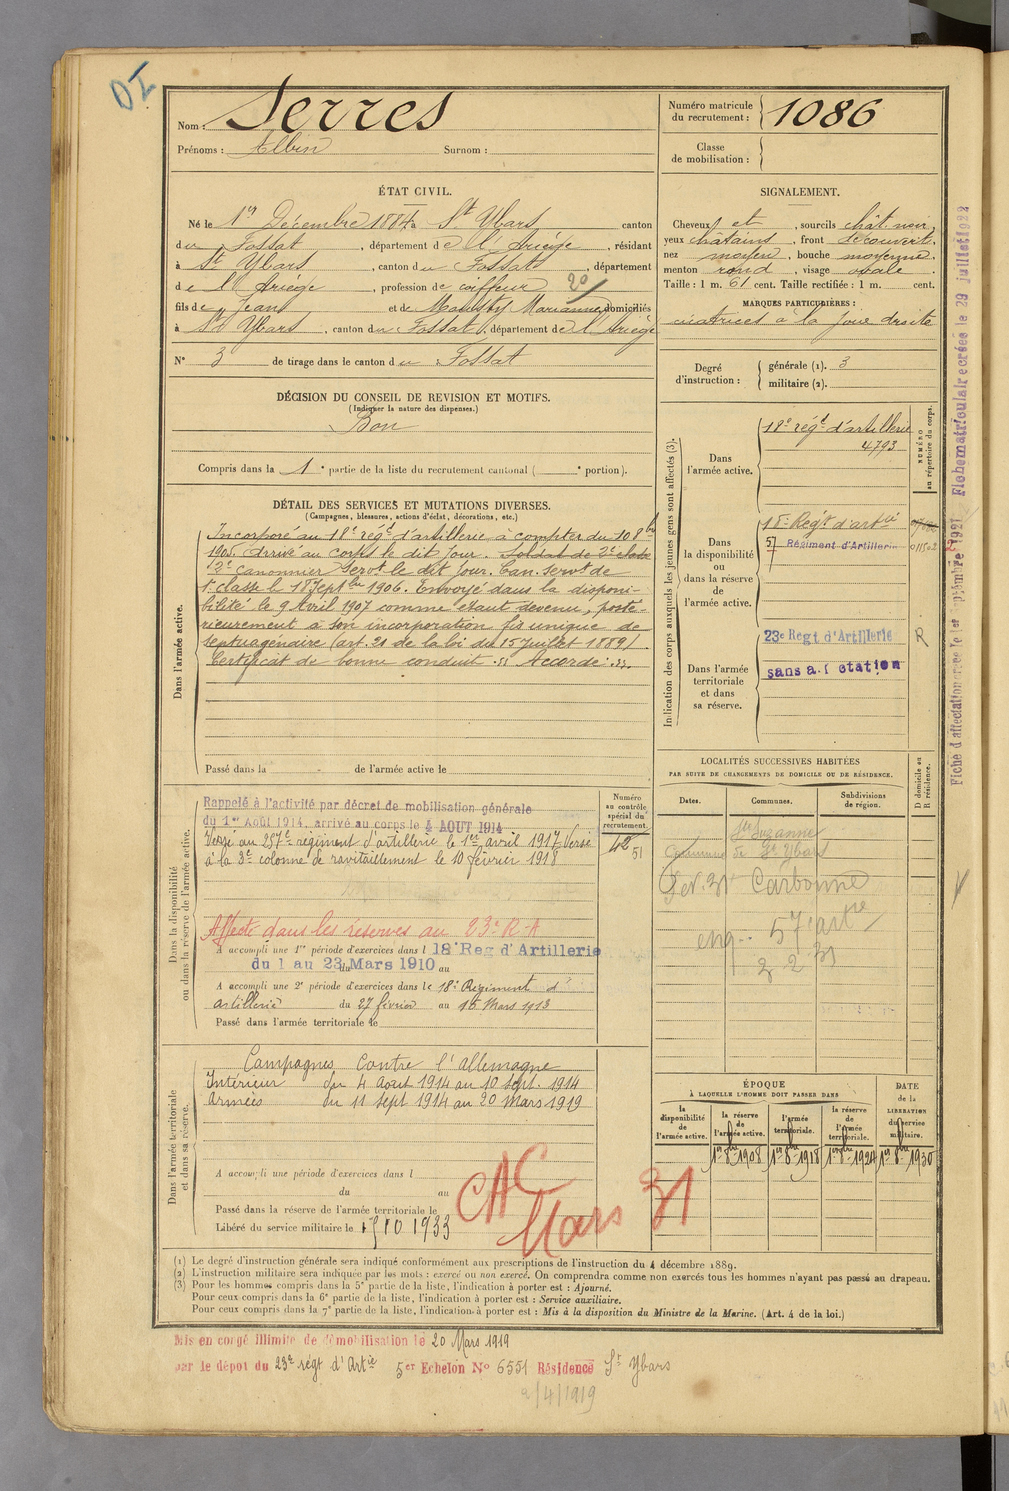 DI
Nom : Serres
Prénoms : Albin Surnom :
Numéro matricule du recrutement : 1086
Classe de mobilisation :
ÉTAT CIVIL.
Né le 1er Décembre 1884 à St Ybars canton
du Fossat, département de l'Ariège, résidant
à St Ybars, canton du Fossat, département
de l'Ariège, profession de coiffeur 20
fils de Jean et de Marianne, domiciliés
à St Ybars, canton du Fossat, département de l'Ariège
N° 3 de tirage dans le canton du Fossat
SIGNALEMENT.
Cheveux et, sourcils chât. noir,
yeux châtains, front découvert,
nez moyen, bouche moyenne,
menton rond, visage ovale.
Taille : 1 m. 61 cent. Taille rectifiée : 1 m. cent.
MARQUES PARTICULIÈRES :
cicatrices à la joue droite
Degré d'instruction :
générale (1). 3
militaire (2).
DÉCISION DU CONSEIL DE REVISION ET MOTIFS.
(Indiquer la nature des dispenses.)
Bon
Compris dans la 1e partie de la liste du recrutement cantonal ( e portion).
DÉTAIL DES SERVICES ET MUTATIONS DIVERSES.
(Campagnes, blessures, actions d'éclat, décorations, etc.)
Dans l'armée active.
Incorporé au 18e régt d'artillerie à compter du 10 8bre
1905. Arrivé au corps le dit jour. Soldat de 2e classe
2e canonnier servt le dit jour. Can. servt de
1e classe le 18 Septbre 1906. Envoyé dans la disponi-
bilité le 9 Avril 1907 comme étant devenu, posté-
rieurement à son incorporation fils unique de
septuagénaire (art. 21 de la loi du 15 Juillet 1889)
Certificat de bonne conduite "Accordé".
Passé dans la de l'armée active le
Indication des corps auxquels les jeunes gens sont affectés (3).
NUMÉRO au répertoire du corps.
Dans l'armée active.
18e régt d'artillerie
4793
Dans la disponibilité ou dans la réserve de l'armée active.
18e Régt d'artie
57 Régiment d'Artillerie 011502
Dans l'armée territoriale et dans sa réserve.
23e Regt d'Artillerie R
sans affectation
Fiche d'affectation créée le 1er septembre 1921 Fiche matriculaire créée le 29 juillet 1922
Dans la disponibilité ou dans la réserve de l'armée active.
Rappelé à l'activité par décret de mobilisation générale
du 1er Août 1914, arrivé au corps le 4 AOUT 1914
Versé au 287e régiment d'artillerie le 1er avril 1917. Versé
à la 3e colonne de ravitaillement le 10 février 1918
Affecté dans les réserves au 23e R.A
A accompli une 1re période d'exercices dans l 18e Reg d'Artillerie
du 1 au 23 Mars 1910 au
A accompli une 2e période d'exercices dans le 18e Régiment d'
artillerie du 27 février au 15 Mars 1913
Passé dans l'armée territoriale le
Numéro au contrôle spécial du recrutement.
51
LOCALITÉS SUCCESSIVES HABITÉES
PAR SUITE DE CHANGEMENTS DE DOMICILE OU DE RÉSIDENCE.
Dates. Communes. Subdivisions de région. D domicile ou R résidence.
Ste Suzanne
Commune de St Ybars
Carbonne
57e artie
3 2 31
Dans l'armée territoriale et dans sa réserve.
Campagnes contre l'Allemagne
Intérieur du 4 août 1914 au 10 sept. 1914
Armées du 11 sept 1914 au 20 mars 1919
A accompli une période d'exercices dans l
du au
Passé dans la réserve de l'armée territoriale le
Libéré du service militaire le 15 10 1933
CAC Mars 31
ÉPOQUE
À LAQUELLE L'HOMME DOIT PASSER DANS
la disponibilité de l'armée active.
la réserve de l'armée active.
l'armée territoriale.
la réserve de l'armée territoriale.
DATE de la LIBÉRATION du service militaire.
1er 8bre 1908 1er 8bre 1918 1er 8bre 1924 1er 8bre 1930
(1) Le degré d'instruction générale sera indiqué conformément aux prescriptions de l'instruction du 4 décembre 1889.
(2) L'instruction militaire sera indiquée par les mots : exercé ou non exercé. On comprendra comme non exercés tous les hommes n'ayant pas passé au drapeau.
(3) Pour les hommes compris dans la 5e partie de la liste, l'indication à porter est : Ajourné.
Pour ceux compris dans la 6e partie de la liste, l'indication à porter est : Service auxiliaire.
Pour ceux compris dans la 7e partie de la liste, l'indication à porter est : Mis à la disposition du Ministre de la Marine. (Art. 4 de la loi.)
Mis en congé illimité de démobilisation le 20 Mars 1919
par le dépôt du 23e régt d'Artie 5er Echelon N° 6551 Résidence St Ybars
2/4/1919